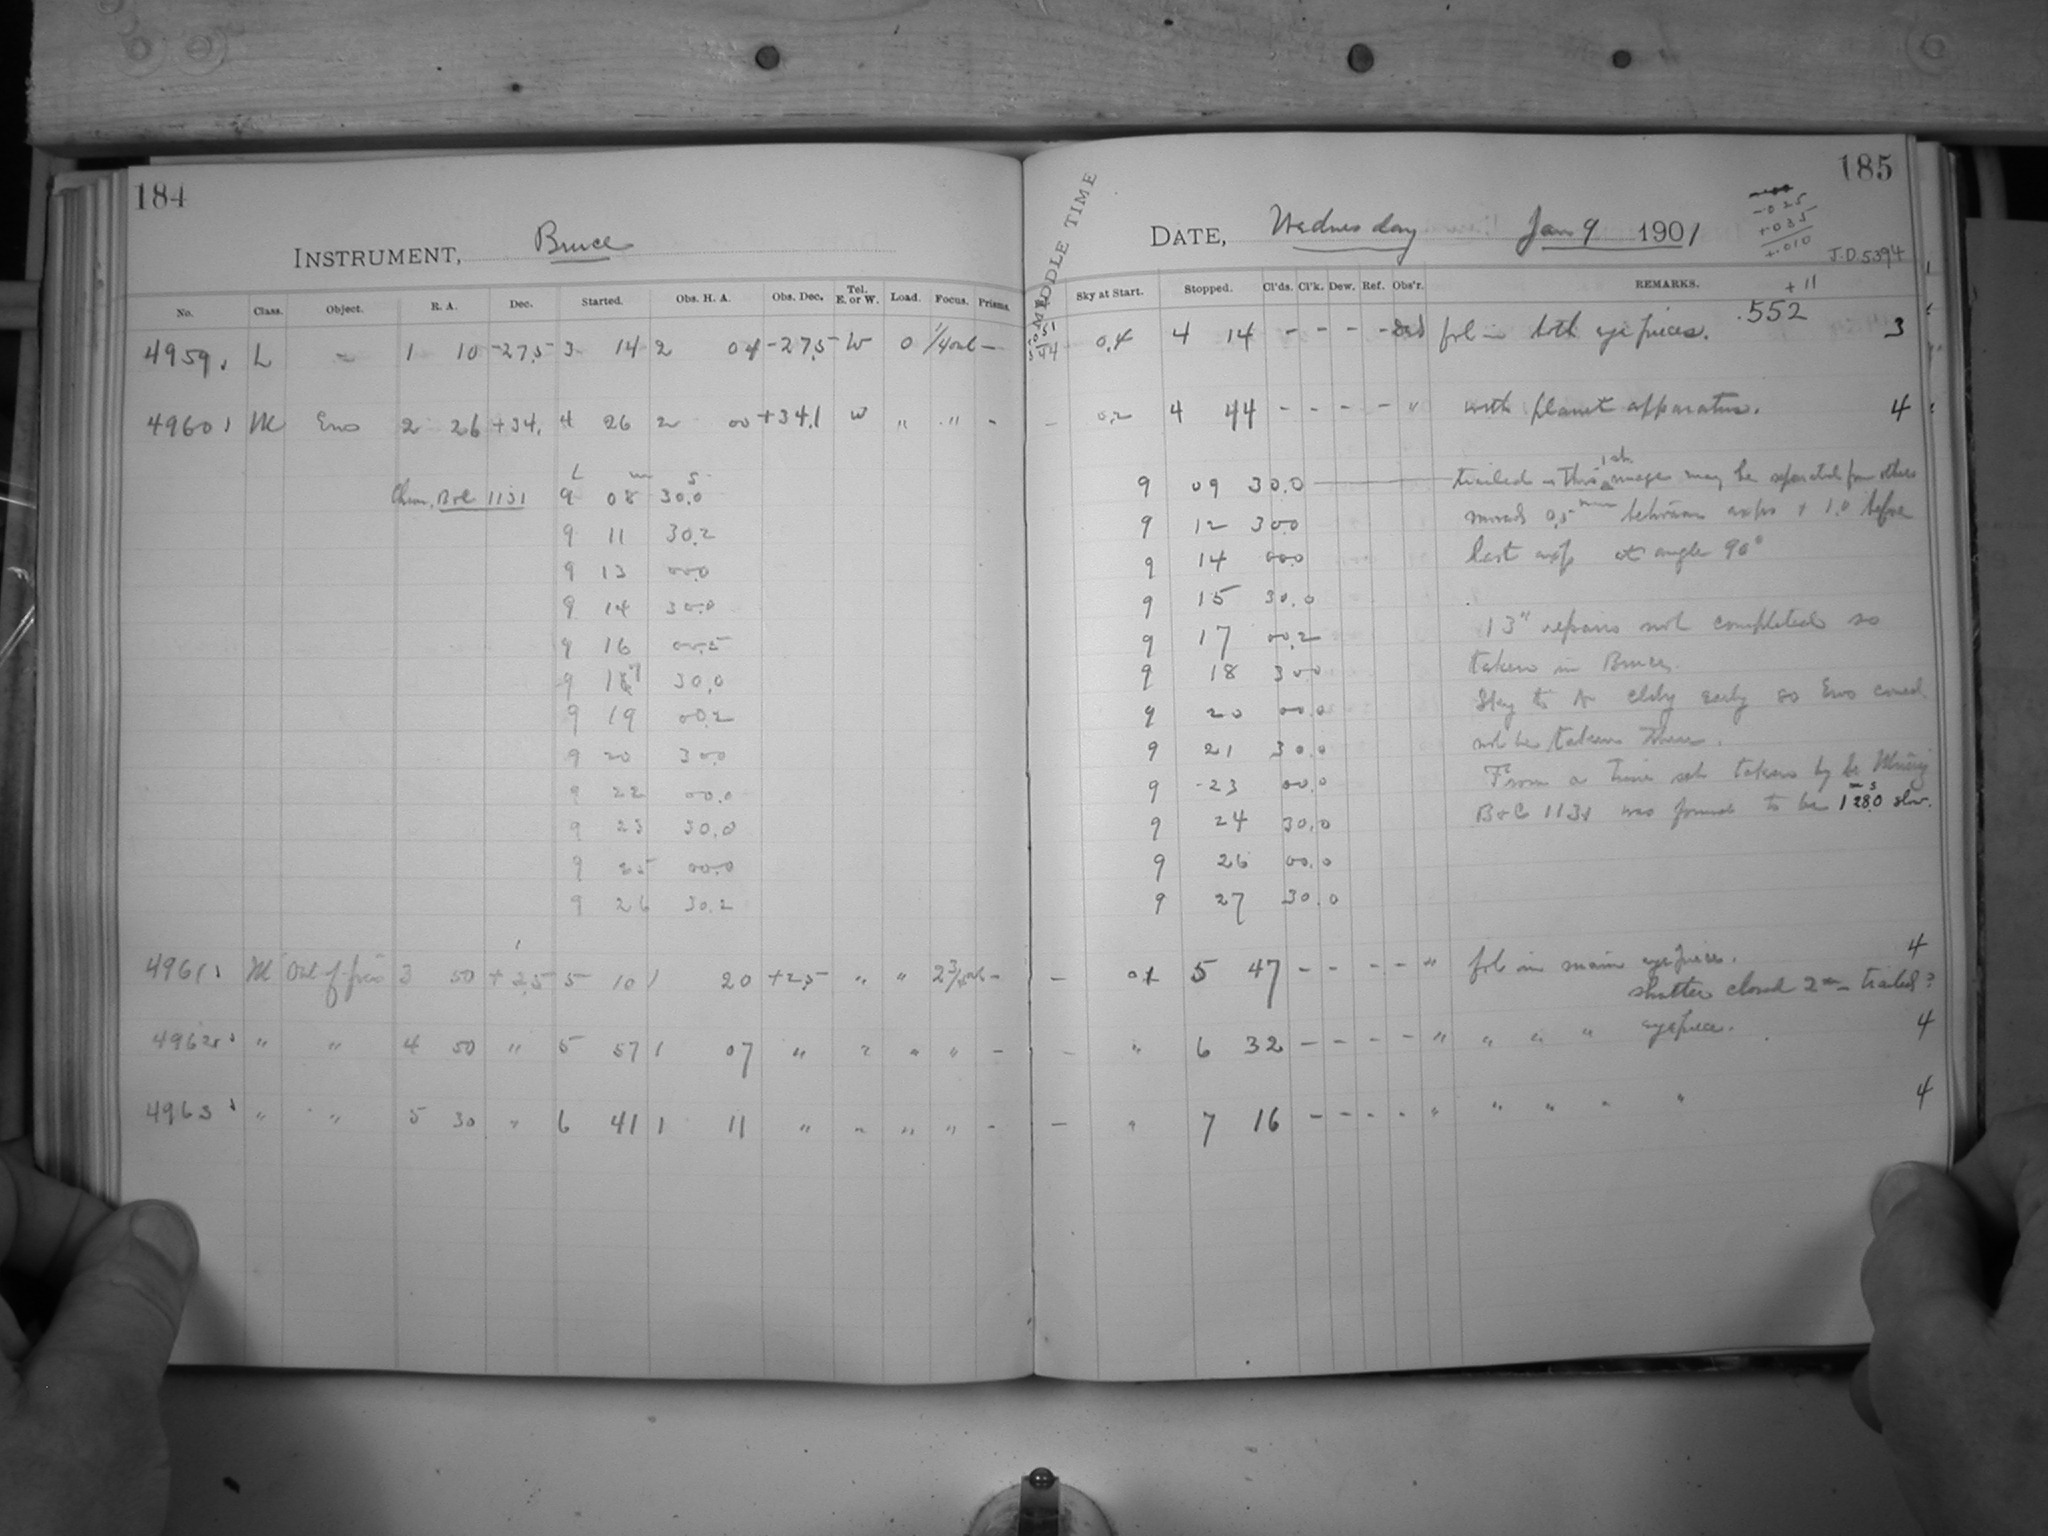 184
INSTRUMENT, Bruce
No. Class. Object. R. A. Dec. Started. Obs. H. A. Obs. Dec. Tel. E. or W. Load. Focus. Prisms.
4959 L – 1 10 -27.5 3 14 2 04 -27.5 W 0 1/4 out –
4960 M Eros 2 26 +34. 4 26 2 00 +34.1 W " " -
h m s
Chron. B&C 1131 9 08 30.0
9 11 30.2
9 13 00.0
9 14 30.0
9 16 00.5
9 17 30.0
9 19 00.2
9 20 30.0
9 22 00.0
9 23 30.0
9 25 00.0
9 26 30.2
4961 M Out of focus 3 50 +2.5 5 10 1 20 +2.5 " " 2 3/4 out –
4962 " " 4 50 " 5 57 1 07 " " " " –
4963 " " 5 30 " 6 41 1 11 " " " " -
185
MIDDLE TIME
DATE, Wednesday Jan 9 1901
-.025
+.035
+.010
J.D. 5394
Sky at Start. Stopped. Cl'ds. Cl'k. Dew. Ref. Obs'r. REMARKS.
+11
.552
0.4 4 14 – – – – fol in both eye pieces. 3
– 0.2 4 44 – – – – " with planet apparatus. 4
9 09 30.0 trailed so this 1st image may be separated from others
9 12 30.0 moved 0.5 mm between exps & 1.0 before
9 14 00.0 last exp at angle 90°
9 15 30.0
9 17 00.2 13" repairs not completed so
9 18 30.0 taken in Bruce.
9 20 00.0 Sky to N cldy early so Eros could
9 21 30.0 not be taken then.
9 23 00.0 From a time set taken by
9 24 30.0 B&C 1131 was found to be 1 m 28.0 s slow.
9 26 00.0
9 27 30.0
– 01 5 47 – – – – " fol in main eyepiece. 4
shutter closed 2 m – trailed?
– " 6 32 – – – – " " " " eyepiece. 4
– " 7 16 – – – - " " " " " 4